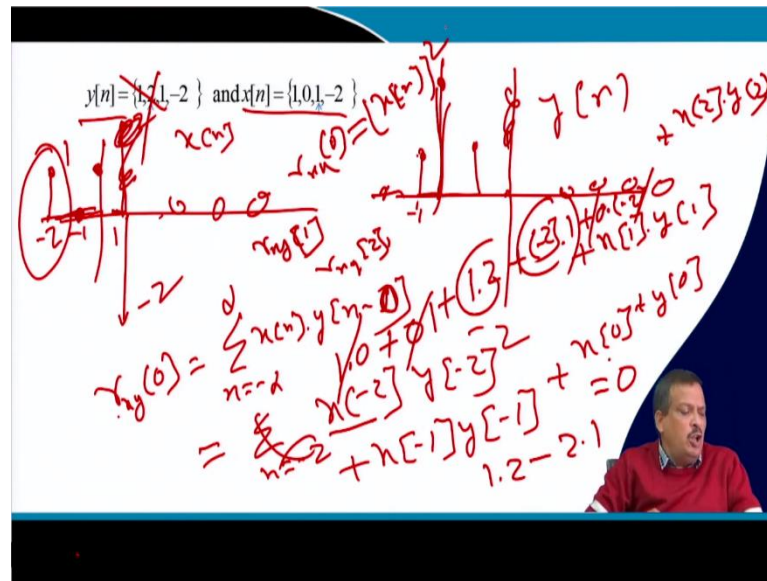 y[n]={1,2,1,-2 } and x[n]={1,0,1,-2 }
x[n]
(0)=[x[n]]²
y[n]
+ x[2].y[2]
1
-2 -1 1
-1
-2
r_xy[1]
r_xy[2]
r_xy(0) = ∑ x[n].y[n-0]
n=-α
1.0 + 0.1 + 1.2 + (-2).1 + 0.(-2)
+ x[1].y[1]
= x[-2] y[-2]
+ x[-1] y[-1] + x[0] + y[0]
= 0
1.2 - 2.1